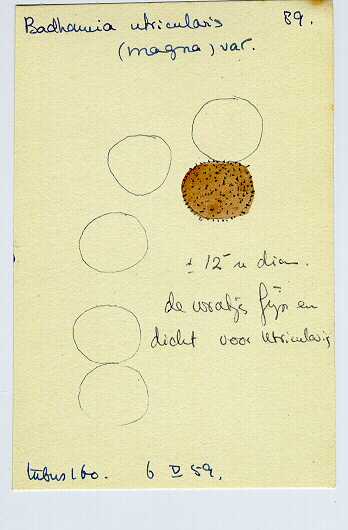 Badhamia utricularis 89.
(magna) var.
± 12 u diam.
de wratjes fijn en
dicht voor utricularis
tubus 160. 6 V 59.